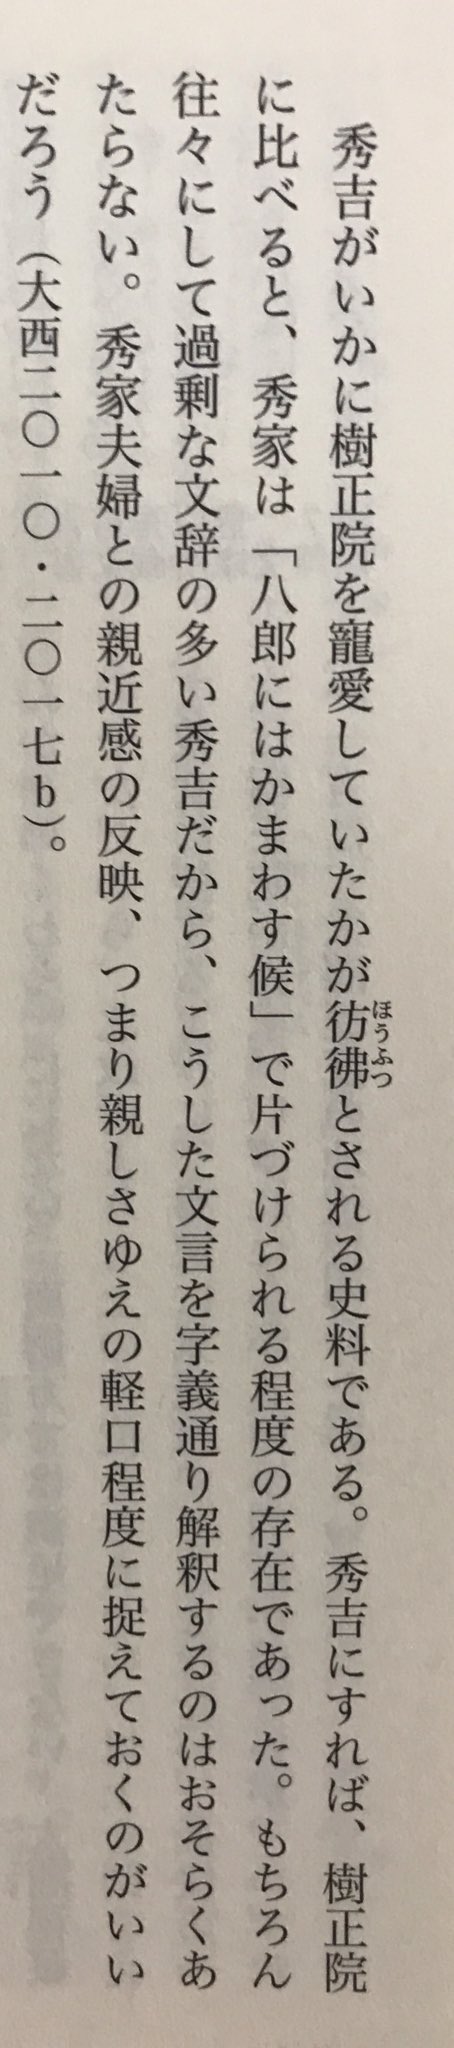 秀吉がいかに樹正院を寵愛していたかが彷彿とされる史料である。秀吉にすれば、樹正院
ほうふつ
に比べると、秀家は「八郎にはかまわす候」で片づけられる程度の存在であった。もちろん
往々にして過剰な文辞の多い秀吉だから、こうした文言を字義通り解釈するのはおそらくあ
たらない。秀家夫婦との親近感の反映、つまり親しさゆえの軽口程度に捉えておくのがいい
だろう（大西二〇一〇・二〇一七b）。